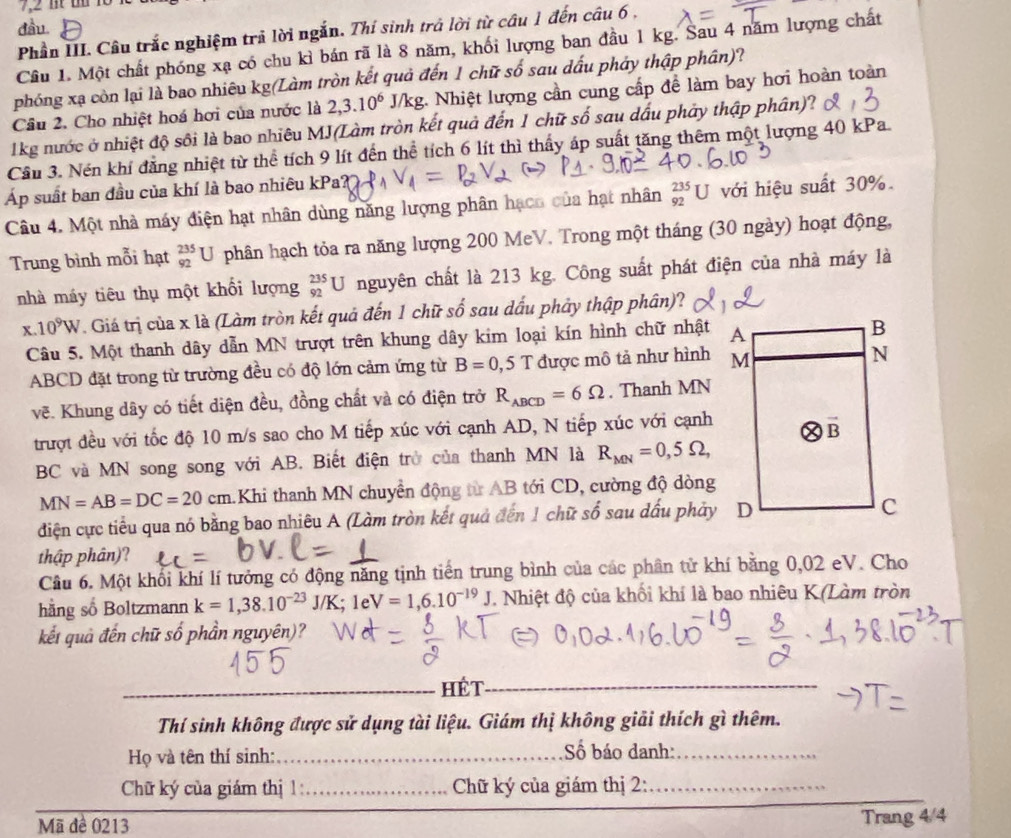 đầu. Đ
Phần III. Câu trắc nghiệm trả lời ngắn. Thí sinh trả lời từ câu 1 đến câu 6.
λ = T
Câu 1. Một chất phóng xạ có chu kì bán rã là 8 năm, khối lượng ban đầu 1 kg. Sau 4 năm lượng chất
phóng xạ còn lại là bao nhiêu kg(Làm tròn kết quả đến 1 chữ số sau dấu phảy thập phân)?
Câu 2. Cho nhiệt hoá hơi của nước là 2,3.10⁶ J/kg. Nhiệt lượng cần cung cấp để làm bay hơi hoàn toàn
1kg nước ở nhiệt độ sôi là bao nhiêu MJ(Làm tròn kết quả đến 1 chữ số sau dấu phảy thập phân)? 2,3
Câu 3. Nén khí đẳng nhiệt từ thể tích 9 lít đến thể tích 6 lít thì thấy áp suất tăng thêm một lượng 40 kPa.
Áp suất ban đầu của khí là bao nhiêu kPa? 80 P₁V₁ = P₂V₂ ⇔ P1. 9.10⁻³ = 40.6.10⁻³
Câu 4. Một nhà máy điện hạt nhân dùng năng lượng phân hạch của hạt nhân ²³⁵₉₂U với hiệu suất 30%.
Trung bình mỗi hạt ²³⁵₉₂U phân hạch tỏa ra năng lượng 200 MeV. Trong một tháng (30 ngày) hoạt động,
nhà máy tiêu thụ một khối lượng ²³⁵₉₂U nguyên chất là 213 kg. Công suất phát điện của nhà máy là
x.10⁹W. Giá trị của x là (Làm tròn kết quả đến 1 chữ số sau dấu phảy thập phân)? 2,2
Câu 5. Một thanh dây dẫn MN trượt trên khung dây kim loại kín hình chữ nhật
ABCD đặt trong từ trường đều có độ lớn cảm ứng từ B = 0,5 T được mô tả như hình
vẽ. Khung dây có tiết diện đều, đồng chất và có điện trở R_ABCD = 6 Ω. Thanh MN
trượt đều với tốc độ 10 m/s sao cho M tiếp xúc với cạnh AD, N tiếp xúc với cạnh
BC và MN song song với AB. Biết điện trở của thanh MN là R_MN = 0,5 Ω,
MN = AB = DC = 20 cm.Khi thanh MN chuyển động từ AB tới CD, cường độ dòng
điện cực tiểu qua nó bằng bao nhiêu A (Làm tròn kết quả đến 1 chữ số sau dấu phảy
thập phân)? ec = bV.l = 1
A B
M N
⊗ B⃗
D C
Câu 6. Một khối khí lí tưởng có động năng tịnh tiến trung bình của các phân tử khí bằng 0,02 eV. Cho
hằng số Boltzmann k = 1,38.10⁻²³ J/K; 1eV = 1,6.10⁻¹⁹ J. Nhiệt độ của khối khí là bao nhiêu K(Làm tròn
kết quả đến chữ số phần nguyên)? Wđ = 3/2 KT ⇔ 0,02.1,6.10⁻¹⁹ = 3/2 . 1,38.10⁻²³.T
155
HẾT
→ T =
Thí sinh không được sử dụng tài liệu. Giám thị không giải thích gì thêm.
Họ và tên thí sinh:........................Số báo danh:........................
Chữ ký của giám thị 1:........................ Chữ ký của giám thị 2:........................
Mã đề 0213 Trang 4/4